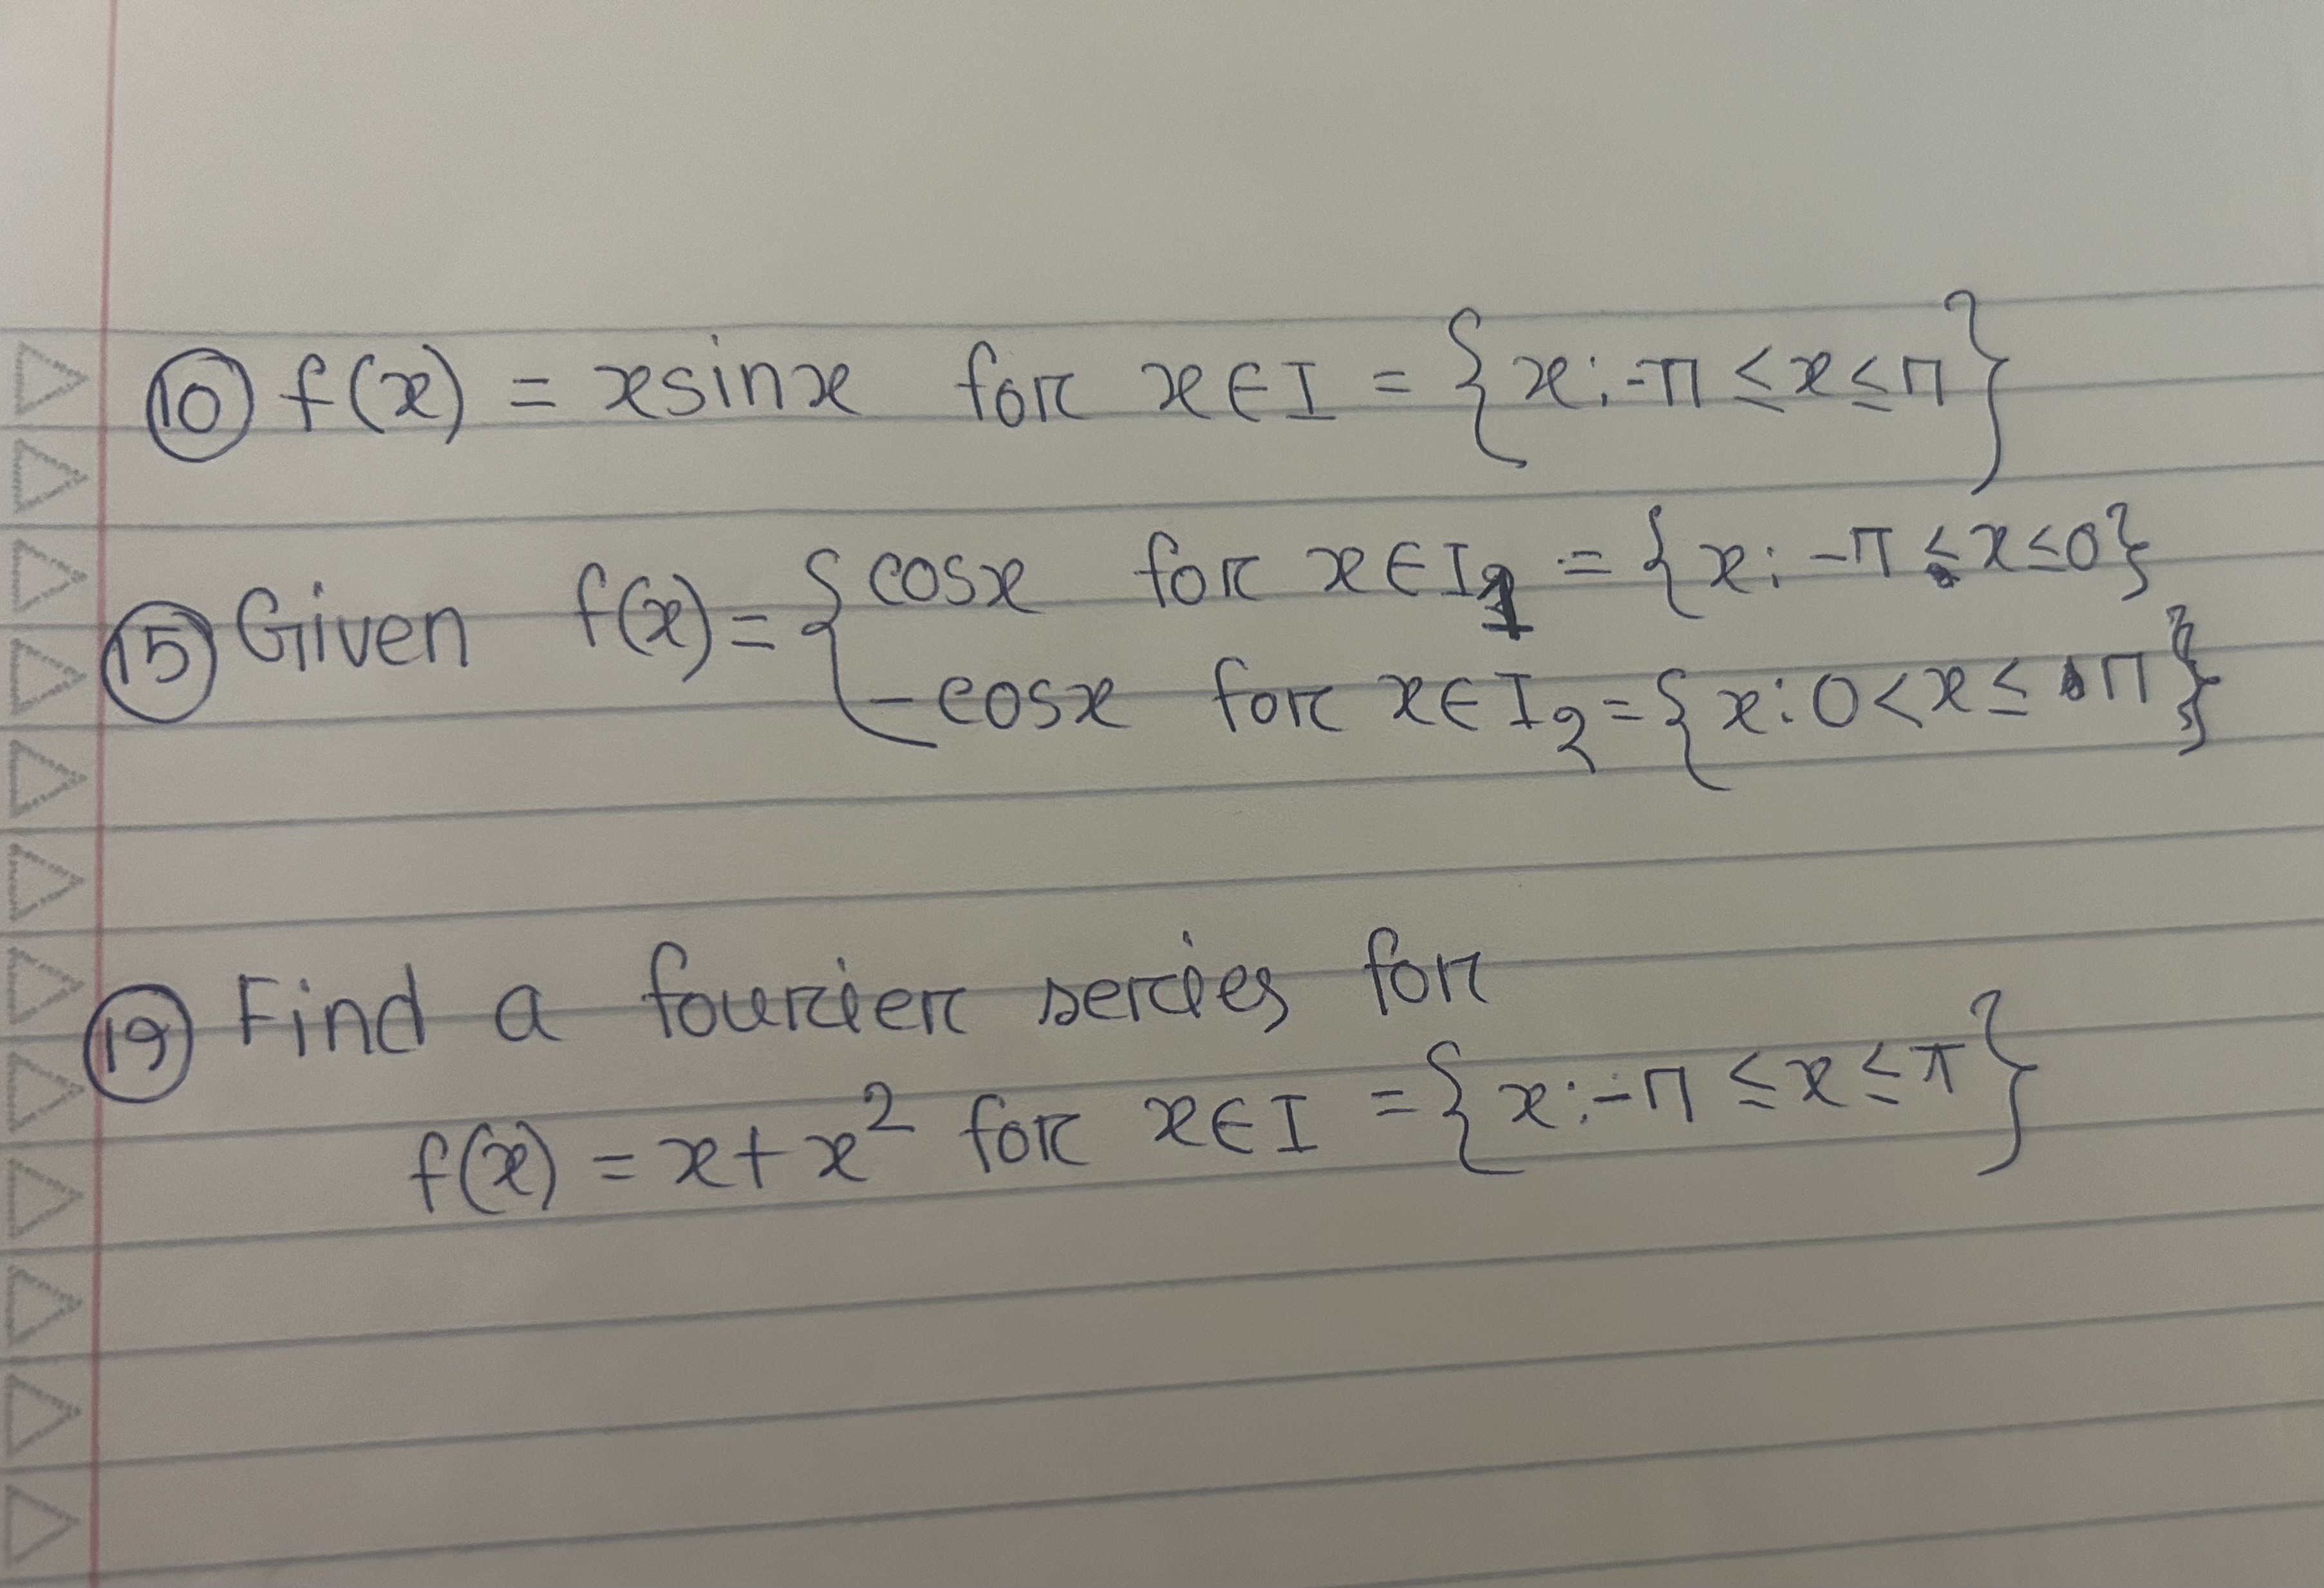 ⑩ f(x) = xsinx for x∈I = {x: -π ≤ x ≤ π}
⑮ Given f(x) = { cosx for x∈I₁ = {x: -π ≤ x ≤ 0}
-cosx for x∈I₂ = {x: 0 < x ≤ π}
⑲ Find a fourier series for
f(x) = x + x² for x∈I = {x: -π ≤ x ≤ π}